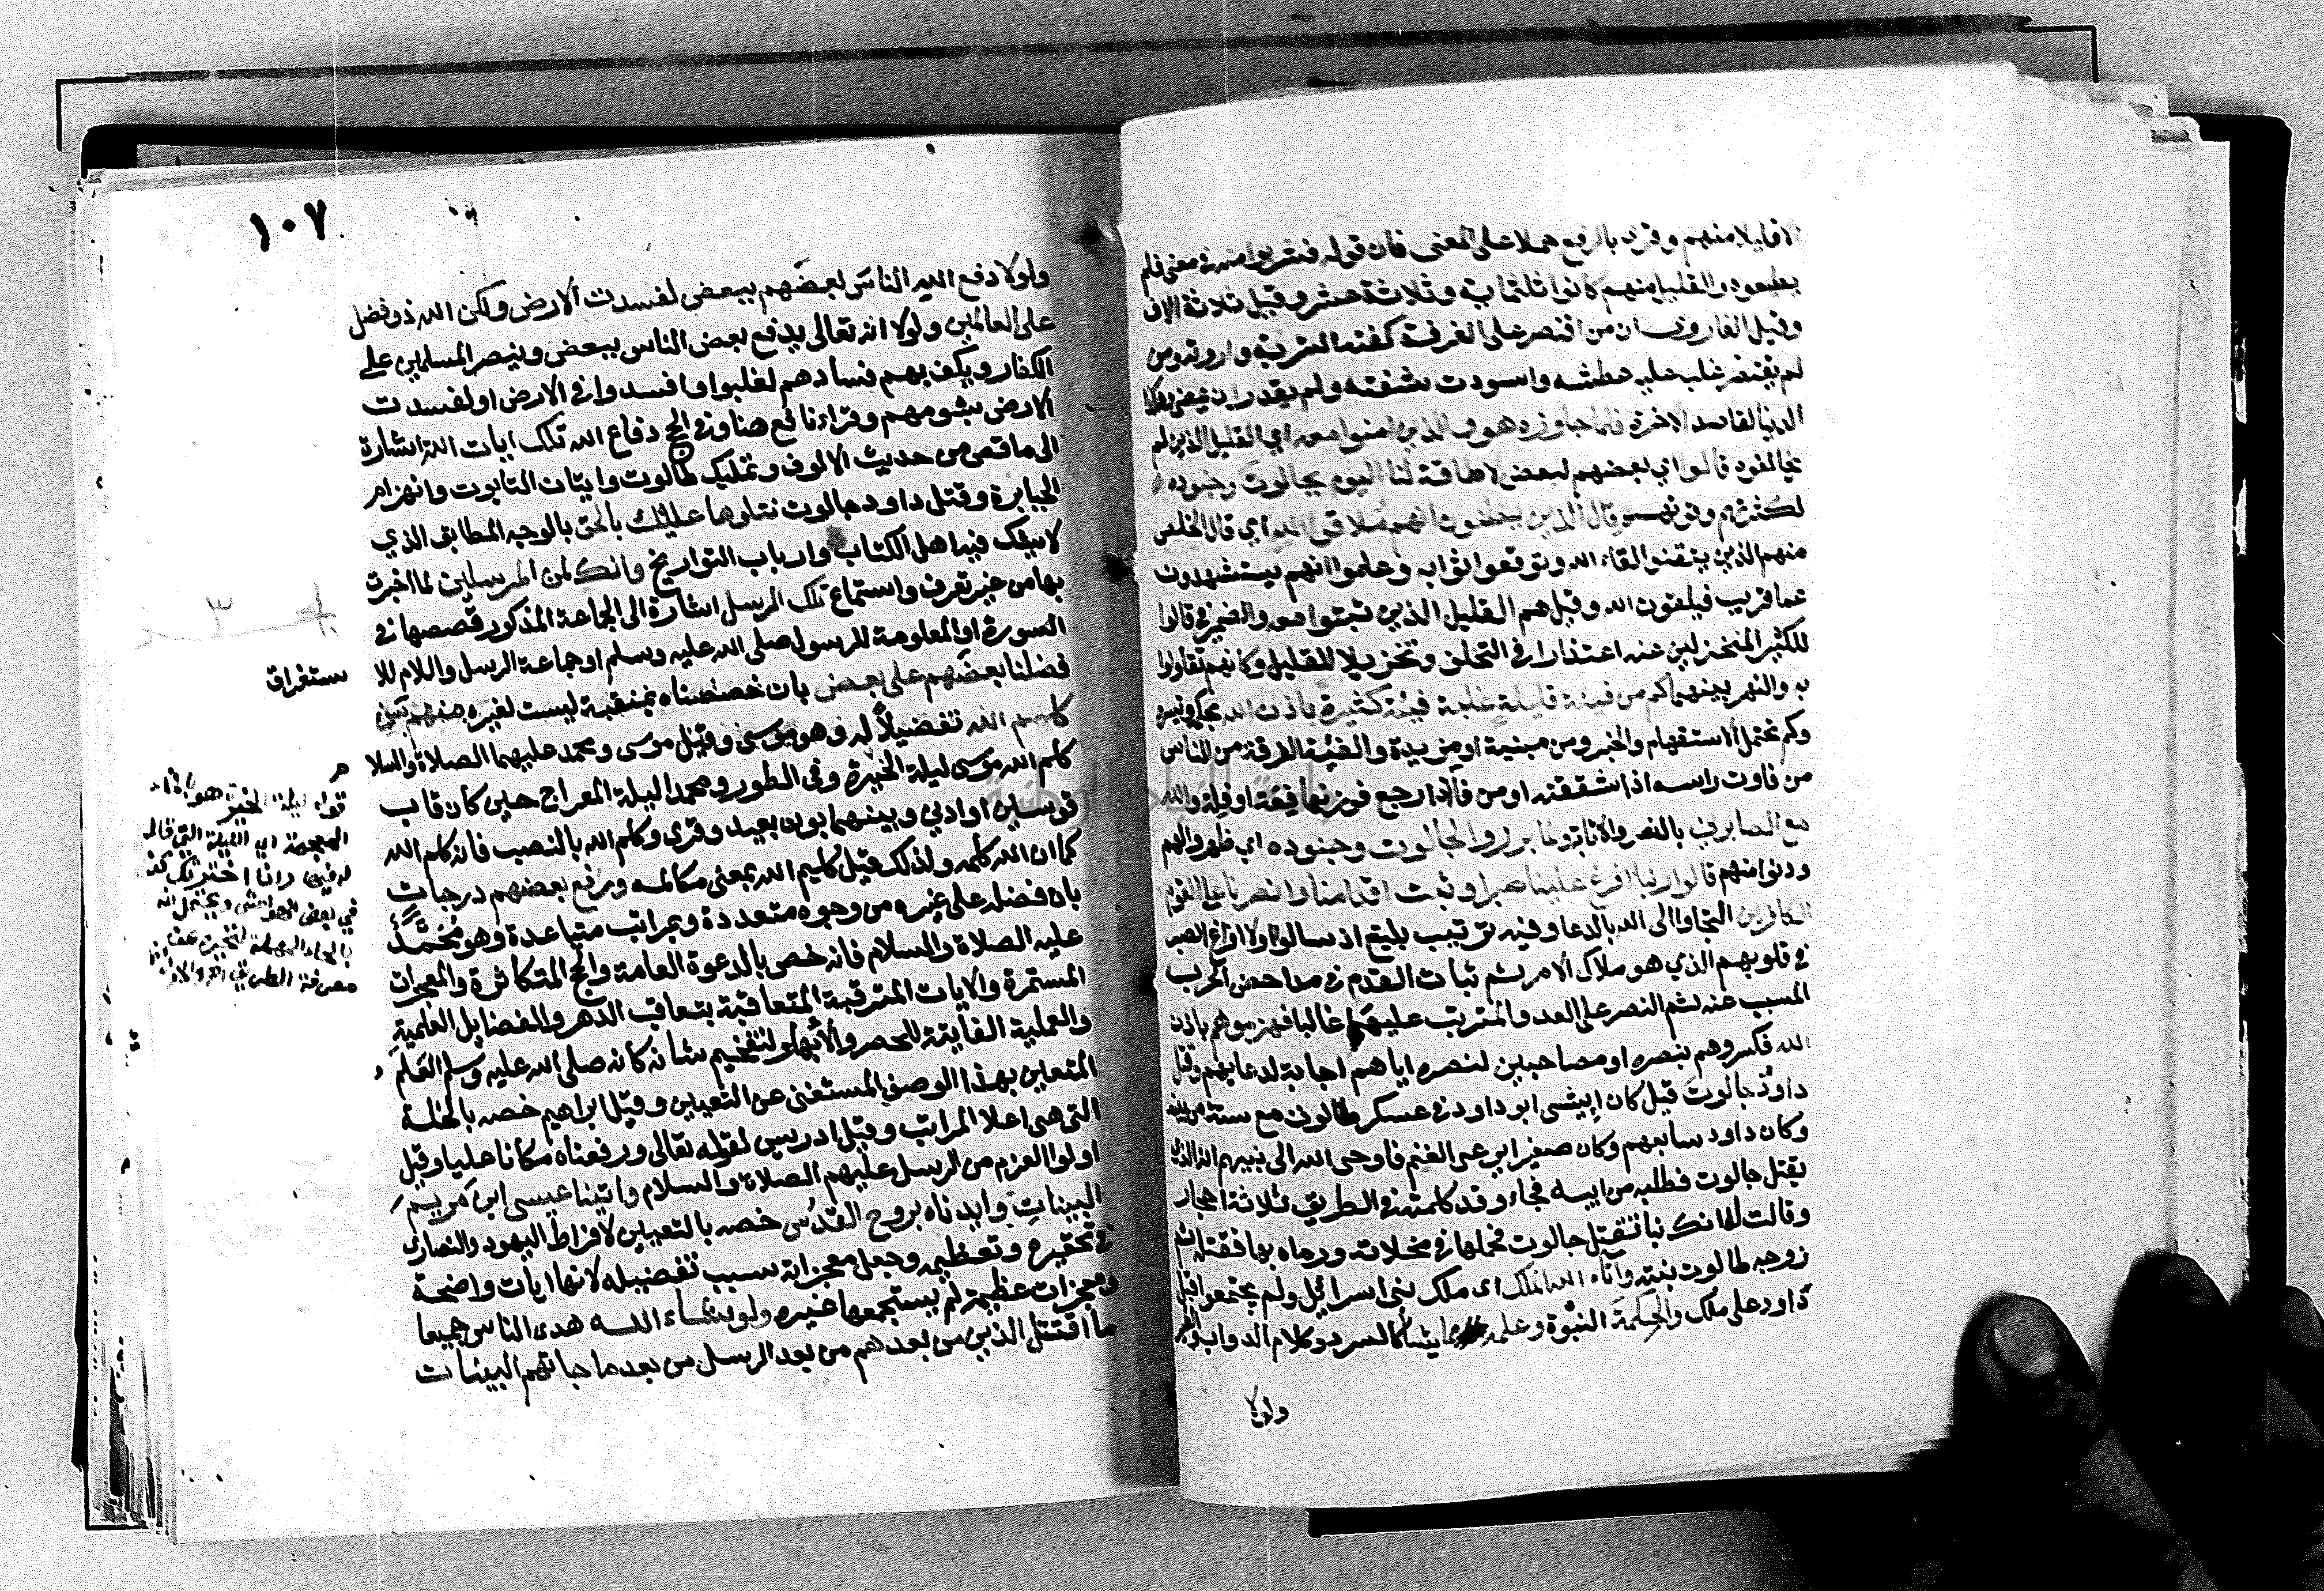 الا قليلا منهم وقرئ بالرفع حملا على المعنى فان قوله فشربوا منه في معنى فلم
يطيعوه والقليل منهم كانوا ثلثماية وثلاثة عشر وقيل ثلاثة الاف
وقيل الفا روى ان من اقتصر على الغرفة كفته لشربه وادوته ومن
لم يقتصر غلب عليه عطشه واسودت شفته ولم يقدر ان يمضي وهكذا
الدنيا لقاصد الاخرة فلما جاوزه هو والذين امنوا معه اي القليل الذين لم
يخالفوه قالوا اي بعضهم لبعض لا طاقة لنا اليوم بجالوت وجنوده
لكثرتهم وقوتهم قال الذين يظنون انهم ملاقوا الله اي قال الخلص
منهم الذين يتقنوا لقاء الله وتوقعوا ثوابه وعلموا انهم يستشهدون
عما قريب فيلقون الله وقيل هم القليل الذين ثبتوا معه والضمير في قالوا
للكثير المنخزلين عنه اعتذارا في التخلف وتخذيلا للقليل وكانهم تقاولوا
به والنهر بينهما كم من فيئة قليلة غلبت فيئة كثيرة باذن الله بحكمه وتيسيره
وكم تحتمل الاستفهام والخبر ومن مبنية او مزيدة والفئة الفرقة من الناس
من فاوت راسه اذا شققته او من فاء اذا رجع فوزنها فعة او فلة والله
مع الصابرين بالنصر والاثابة ولما برزوا لجالوت وجنوده اي ظهروا لهم
ودنوا منهم قالوا ربنا افرغ علينا صبرا وثبت اقدامنا وانصرنا على القوم
الكافرين التجاوا الى الله بالدعا وفيه ترتيب بليغ اذ سالوا اولا افراغ الصبر
في قلوبهم الذي هو ملاك الامر ثم ثبات القدم في مداحض الحرب
المسبب عنه ثم النصر على العدو المترتب عليهما غالبا فهزموهم باذن
الله فكسروهم بنصره او مصاحبين لنصره اياهم اجابة لدعايهم وقتل
داود جالوت قيل كان ايشى ابو داود في عسكر طالوت مع ستة من بنيه
وكان داود سابعهم وكان صغيرا يرعى الغنم فاوحى الله الى نبيهم انه الذي
يقتل جالوت فطلبه من ابيه فجاء وقد كلمته في الطريق ثلاثة احجار
وقالت له انك بنا تقتل جالوت فحملها في مخلاته ورماه بها فقتله ثم
زوجه طالوت بنته وآتاه الله الملك اى ملك بنى اسرائيل ولم يجتمعوا قبل
داود على ملك والحكمة النبوة وعلمه مما يشا كالسرد وكلام الدواب والطير
ولولا
١٠٧
ولولا دفع الله الناس بعضهم ببعض لفسدت الارض ولكن الله ذو فضل
على العالمين ولولا انه تعالى يدفع بعض الناس ببعض وينصر المسلمين على
الكفار ويكف بهم فسادهم لغلبوا وافسدوا في الارض او لفسدت
الارض بشومهم وقراء نافع هنا وفي الحج دفاع الله تلك ايات الله اشارة
الى ما قص من حديث الالوف وتمليك طالوت واتيان التابوت وانهزام
الجبابرة وقتل داود جالوت نتلوها عليك بالحق بالوجه المطابق الذي
لا يشك فيه اهل الكتاب وارباب التواريخ وانك لمن المرسلين لما اخبرت
بها من غير تعرف واستماع تلك الرسل اشارة الى الجماعة المذكور قصصها في
السورة او المعلومة للرسول صلى الله عليه وسلم او جماعة الرسل واللام للا
ستغراق
فضلنا بعضهم على بعض بان خصصناه بمنقبة ليست لغيره منهم من
كلم الله تفضيلا له وهو موسى وقيل موسى ومحمد عليهما الصلاة والسلا
م
كلم الله موسى ليلة الخيرة وفي الطور ومحمدا ليلة المعراج حين كان قاب
قوسين او ادنى وبينهما بون بعيد وقرى وكلم الله بالنصب فانه كلم الله
كما ان الله كلمه ولذلك قيل كليم الله بمعنى مكالمه ورفع بعضهم درجات
بان فضله على غيره من وجوه متعددة وبمراتب متباعدة وهو محمد
عليه الصلاة والسلام فانه خص بالدعوة العامة والحج المتكاثرة والمعجزات
المستمرة والايات المترقبة المتعاقبة بتعاقب الدهر والفضايل العلمية
والعملية الفايتة للحصر والابهام لتفخيم شانه كانه صلى الله عليه وسلم العلم
المتعين بهذا الوصف المستغنى عن التعيين وقيل ابراهيم خصه بالخلة
التى هى اعلا المراتب وقيل ادريس لقوله تعالى ورفعناه مكانا عليا وقيل
اولوا العزم من الرسل عليهم الصلاة والسلام واتينا عيسى ابن مريم
البينات وايدناه بروح القدس خصه بالتعيين لافراط اليهود والنصارى
في تحقيره وتعظيمه وجعل معجزاته سبب تفضيله لانها ايات واضحة
ومعجزات عظيمة لم يستجمعها غيره ولو يشاء الله هدى الناس جميعا
ما اقتتل الذين من بعدهم من بعد الرسل من بعد ما جاتهم البينات
قوله ليلة الخيرة هو بالخاء
المعجمة اي الليلة التي قال
له فيها وانا اخترتك كذا
في بعض الهوامش ويحتمل انه
بالحاء المهملة لتحيره عن
معرفة الطريق